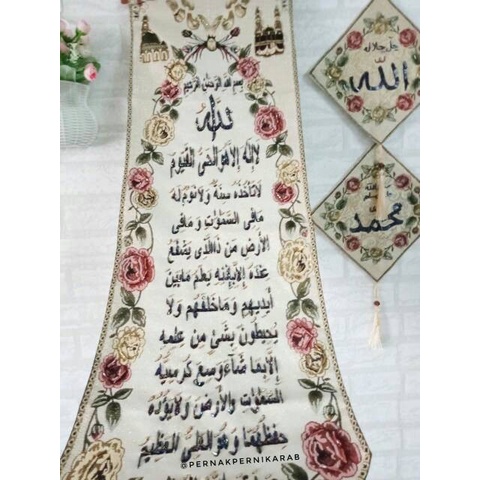 بسم الله الرحمن الرحيم
الله
لا إله إلا هو الحي القيوم
لا تأخذه سنة ولا نوم له
ما في السموات وما في
الأرض من ذا الذي يشفع
عنده إلا بإذنه يعلم ما بين
أيديهم وما خلفهم ولا
يحيطون بشئ من علمه
إلا بما شاء وسع كرسيه
السموات والأرض ولا يؤده
حفظهما وهو العلي العظيم
@PERNAKPERNIKARAB
جل جلاله
الله
محمد